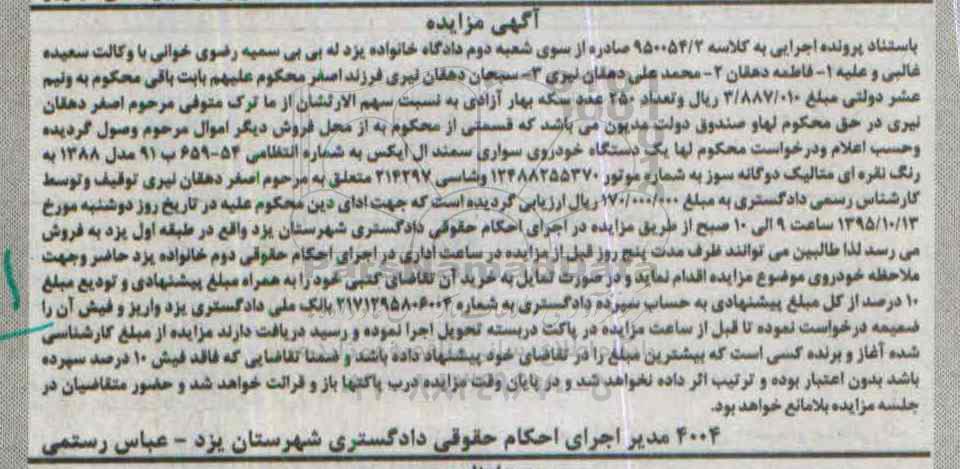 آگهی مزایده
باستناد پرونده اجرایی به کلاسه ۹۵۰۰۵۴/۲ صادره از سوی شعبه دوم دادگاه خانواده یزد له بی بی سمیه رضوی خوانی با وکالت سعیده
غالبی و علیه ۱- فاطمه دهقان ۲- محمد علی دهقان نیری ۳- سبحان دهقان نیری فرزند اصغر محکوم علیهم بابت باقی محکوم به ونیم
عشر دولتی مبلغ ۳/۸۸۷/۰۱۰ ریال وتعداد ۲۵۰ عدد سکه بهار آزادی به نسبت سهم الارثشان از ما ترک متوفی مرحوم اصغر دهقان
نیری در حق محکوم لهاو صندوق دولت مدیون می باشد که قسمتی از محکوم به از محل فروش دیگر اموال مرحوم وصول گردیده
وحسب اعلام ودرخواست محکوم لها یک دستگاه خودروی سواری سمند ال ایکس به شماره انتظامی ۵۴-۶۵۹ ب ۹۱ مدل ۱۳۸۸ به
رنگ نقره ای متالیک دوگانه سوز به شماره موتور ۱۲۴۸۸۲۵۵۳۷۰ وشاسی ۲۱۴۲۹۷ متعلق به مرحوم اصغر دهقان نیری توقیف وتوسط
کارشناس رسمی دادگستری به مبلغ ۱۷۰/۰۰۰/۰۰۰ ریال ارزیابی گردیده است که جهت ادای دین محکوم علیه در تاریخ روز دوشنبه مورخ
۱۳۹۵/۱۰/۱۳ ساعت ۹ الی ۱۰ صبح از طریق مزایده در اجرای احکام حقوقی دادگستری شهرستان یزد واقع در طبقه اول یزد به فروش
می رسد لذا طالبین می توانند ظرف مدت پنج روز قبل از مزایده در ساعت اداری در اجرای احکام حقوقی دوم خانواده یزد حاضر وجهت
ملاحظه خودروی موضوع مزایده اقدام نماید و در صورت تمایل به خرید آن تقاضای کتبی خود را به همراه مبلغ پیشنهادی و تودیع مبلغ
۱۰ درصد از کل مبلغ پیشنهادی به حساب سپرده دادگستری به شماره ۲۱۷۱۲۹۵۸۰۶۰۰۴ بانک ملی دادگستری یزد واریز و فیش آن را
ضمیمه درخواست نموده تا قبل از ساعت مزایده در پاکت دربسته تحویل اجرا نموده و رسید دریافت دارند مزایده از مبلغ کارشناسی
شده آغاز و برنده کسی است که بیشترین مبلغ را در تقاضای خود پیشنهاد داده باشد و ضمنا تقاضایی که فاقد فیش ۱۰ درصد سپرده
باشد بدون اعتبار بوده و ترتیب اثر داده نخواهد شد و در پایان وقت مزایده درب پاکتها باز و قرائت خواهد شد و حضور متقاضیان در
جلسه مزایده بلامانع خواهد بود.
۴۰۰۴ مدیر اجرای احکام حقوقی دادگستری شهرستان یزد - عباس رستمی